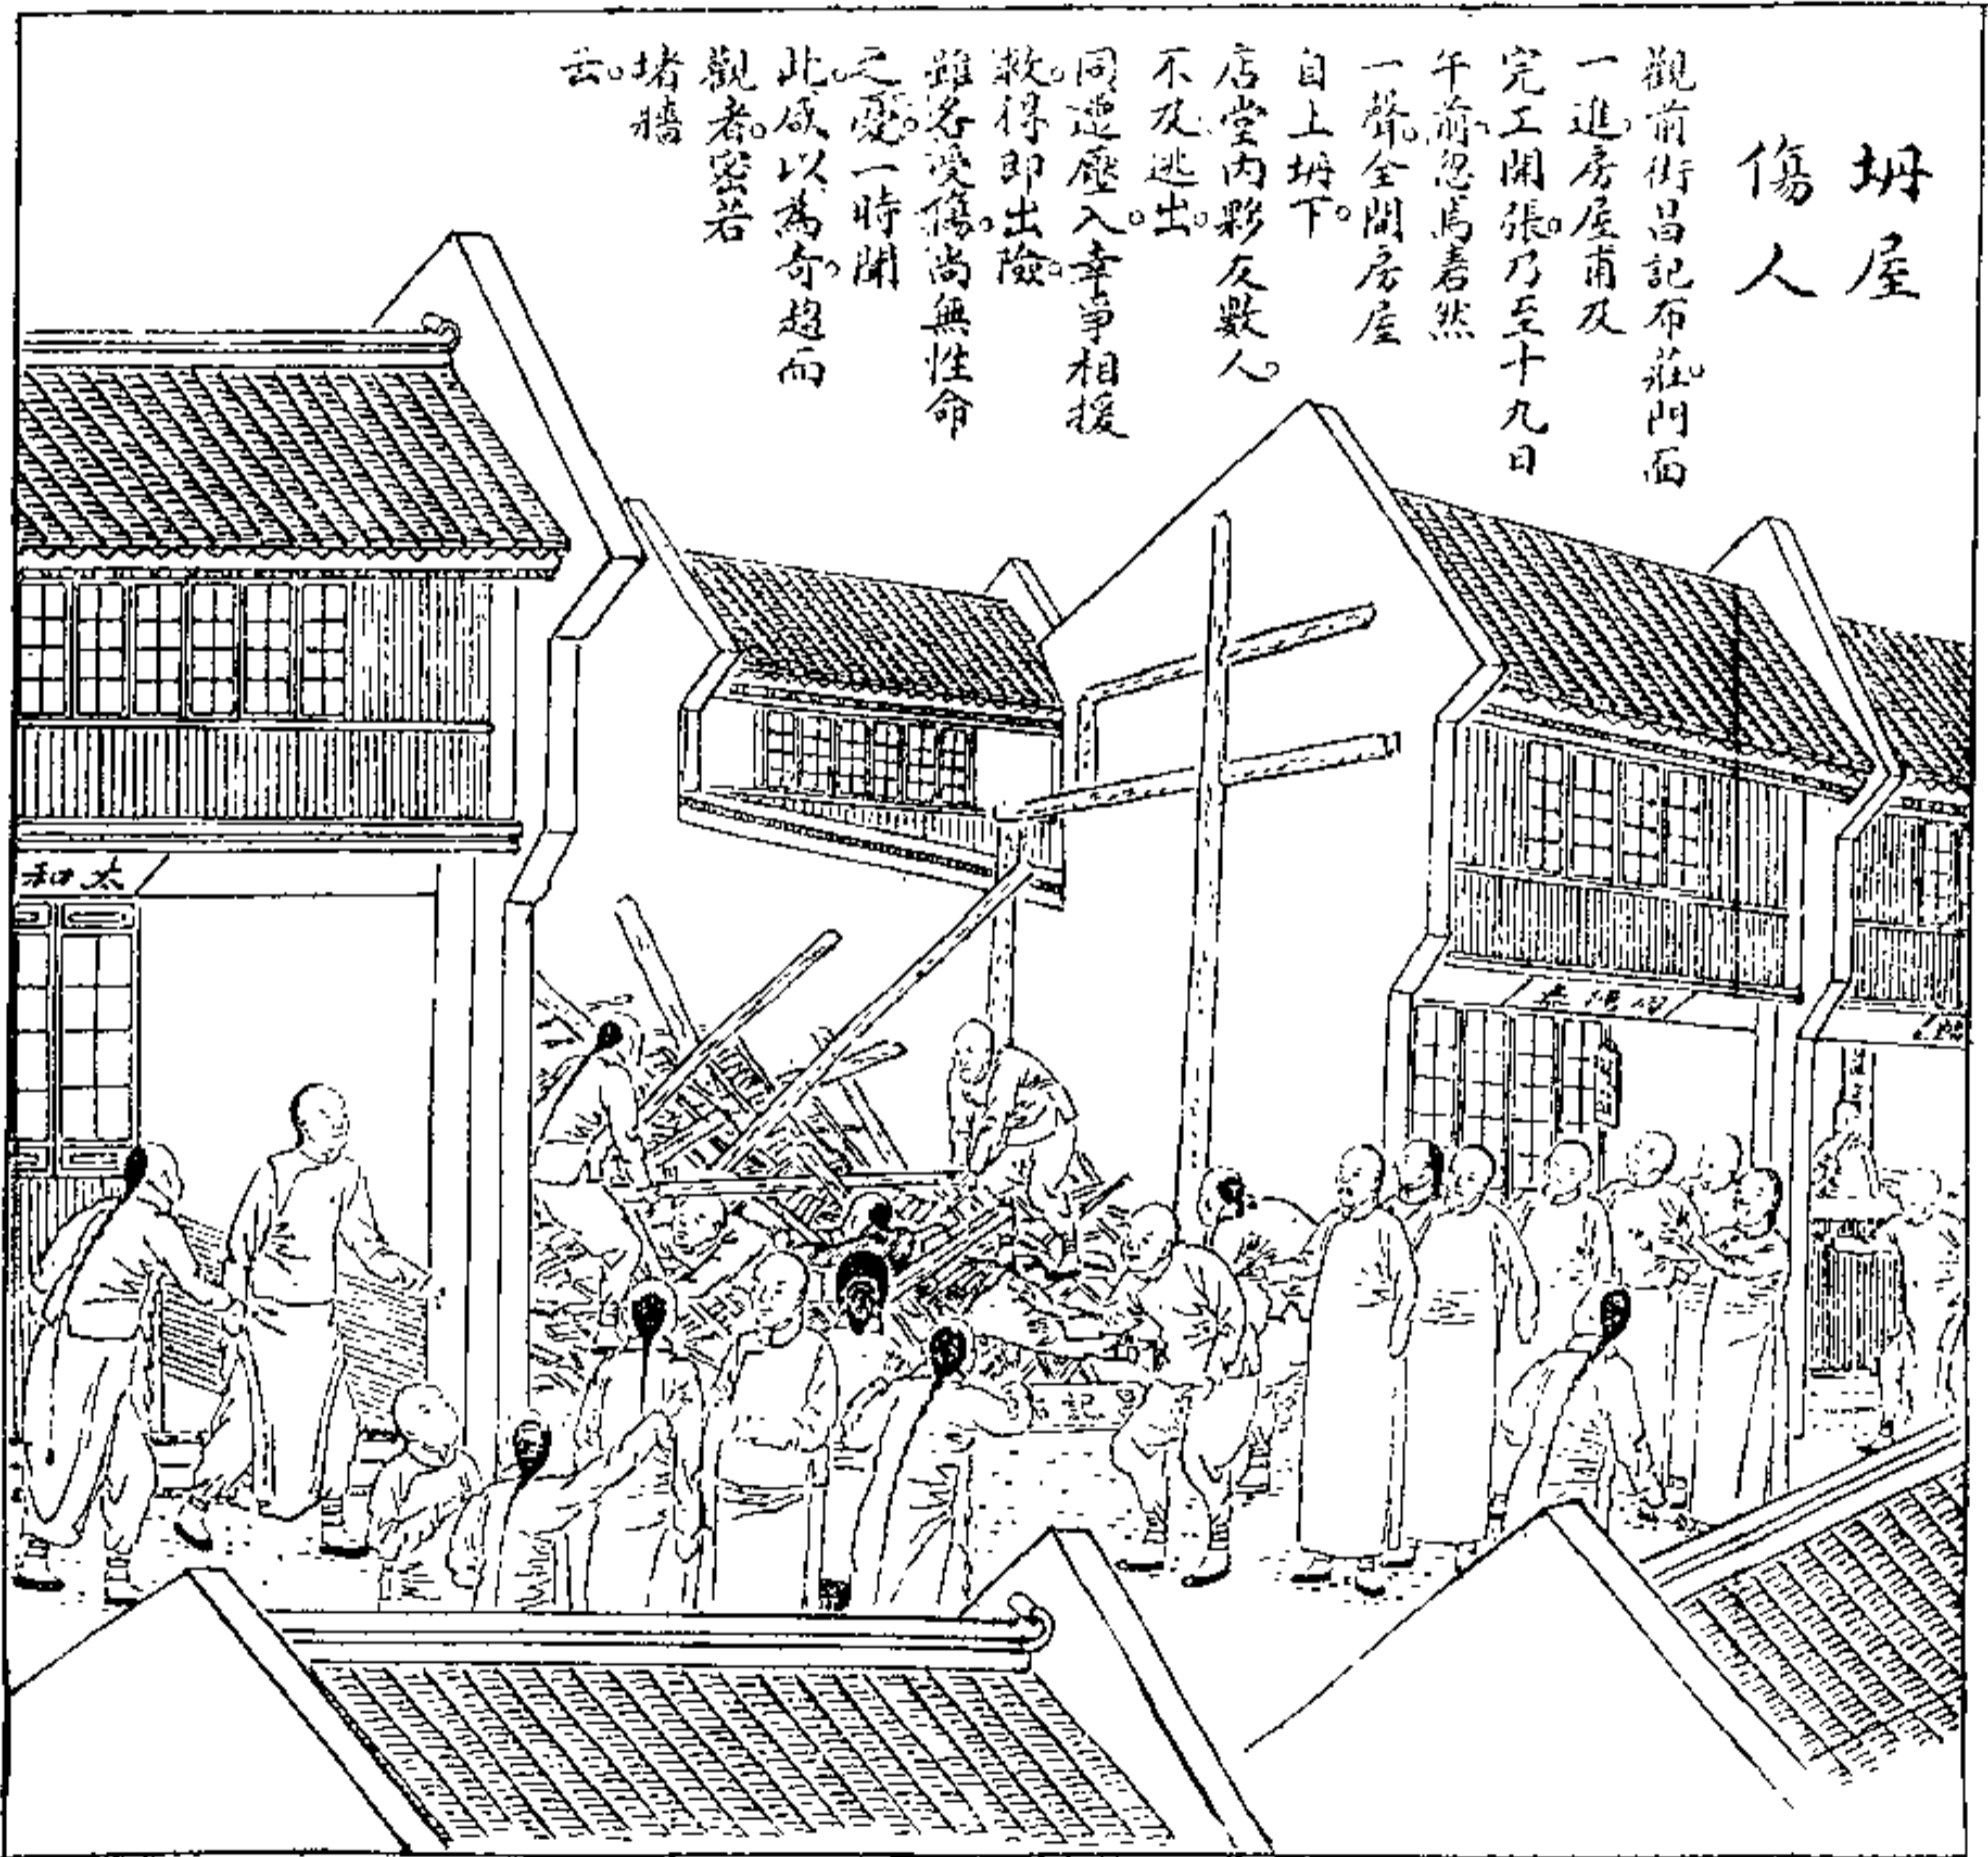 坍屋
傷人
觀前街昌記布莊。門面
一進房屋甫及
完工開張。乃至十九日
午前忽焉砉然
一聲。全間房屋
自上坍下。
店堂內夥友數人。
不及逃出。
同遭壓入。幸爭相援
救。得即出險。
雖各受傷。尚無性命
之憂。一時聞
此。咸以爲奇。趨而
觀者。密若
堵牆
云。
太和
記